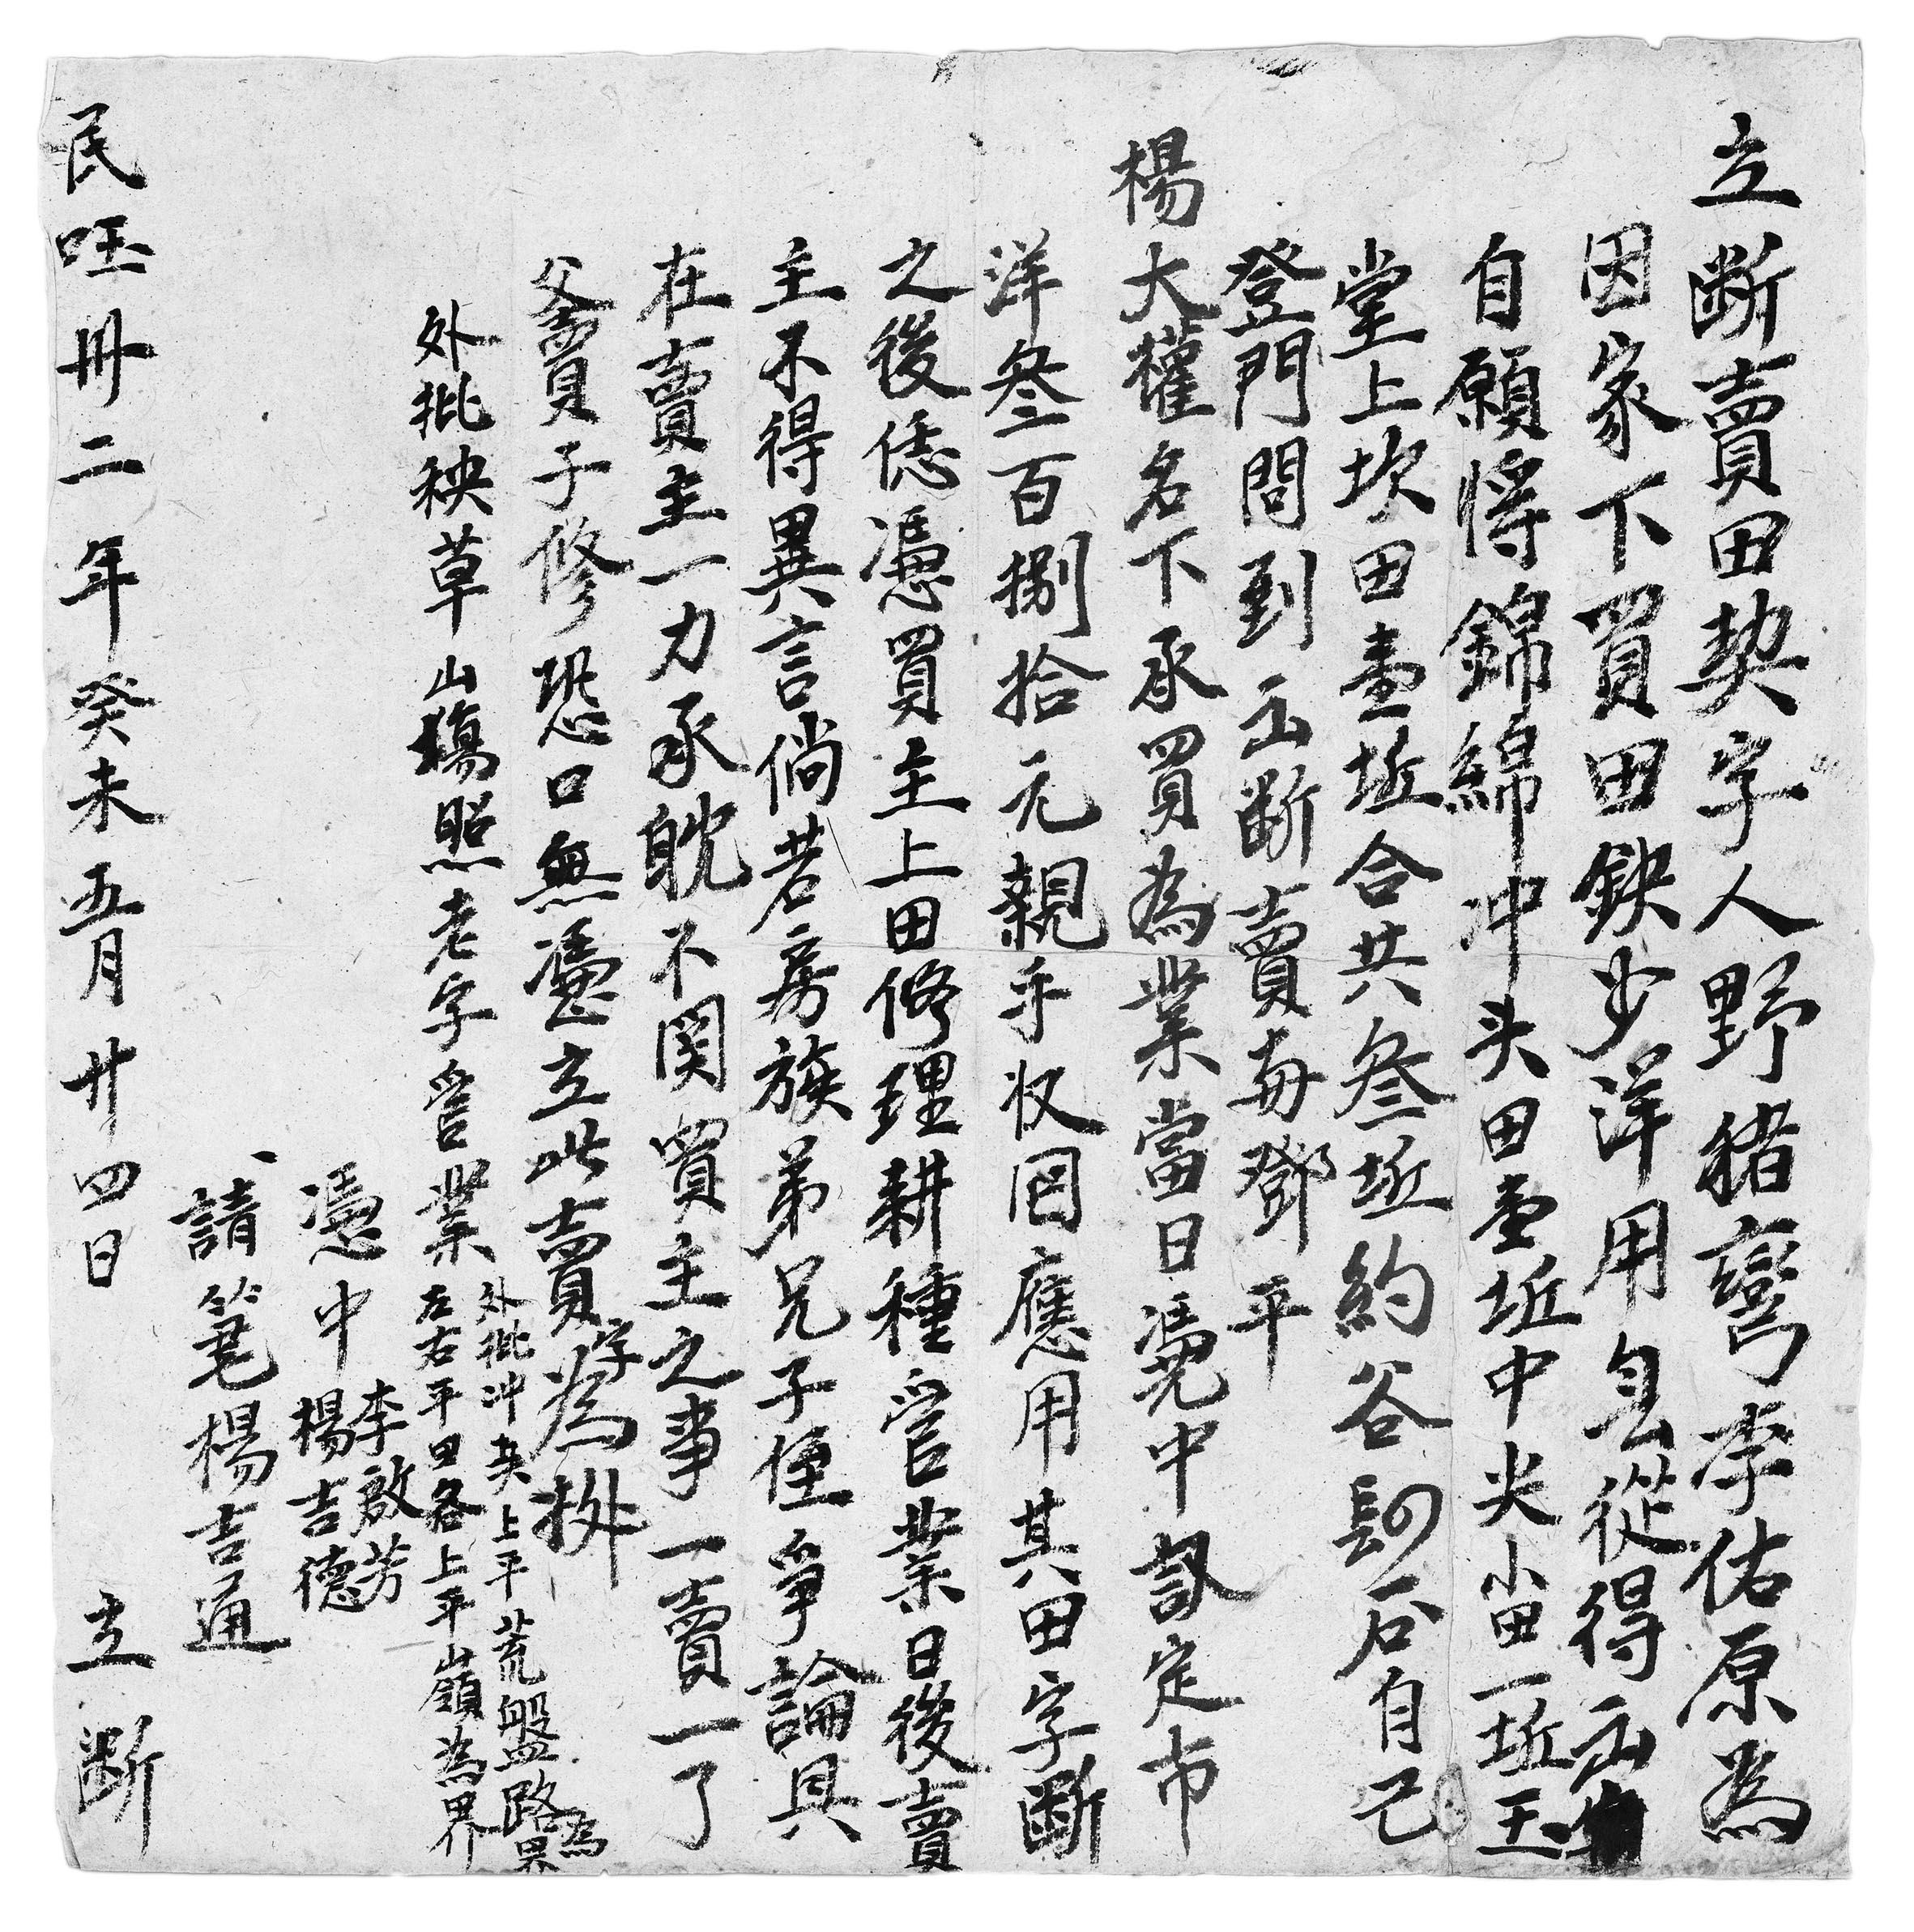 立断賣田契字人野猪彎李佑原為
因家下買田鈌少洋用自從得
自願将錦綿冲头田壹坵中尖小田一坵玉
堂上坎田壹坵合共叁坵約谷石自己
登門問到断賣與鄧平
楊大權名下承買為業當日憑中定市
洋叁百捌拾元親手收回應用其田字断
之後恁憑買主上田修理耕種管業日後賣
主不得異言倘若房族弟兄子侄爭論具
在賣主一力承躭不関買主之事一賣一了
父賣子修恐口無憑立此賣字為
外批秧草山塲照老字管業
外批冲夹上平荒盤路為界
左右平田各上平嶺為界
憑中李啟芳
楊吉德
請筆楊吉通
民国卅二年癸未五月廿四日立断